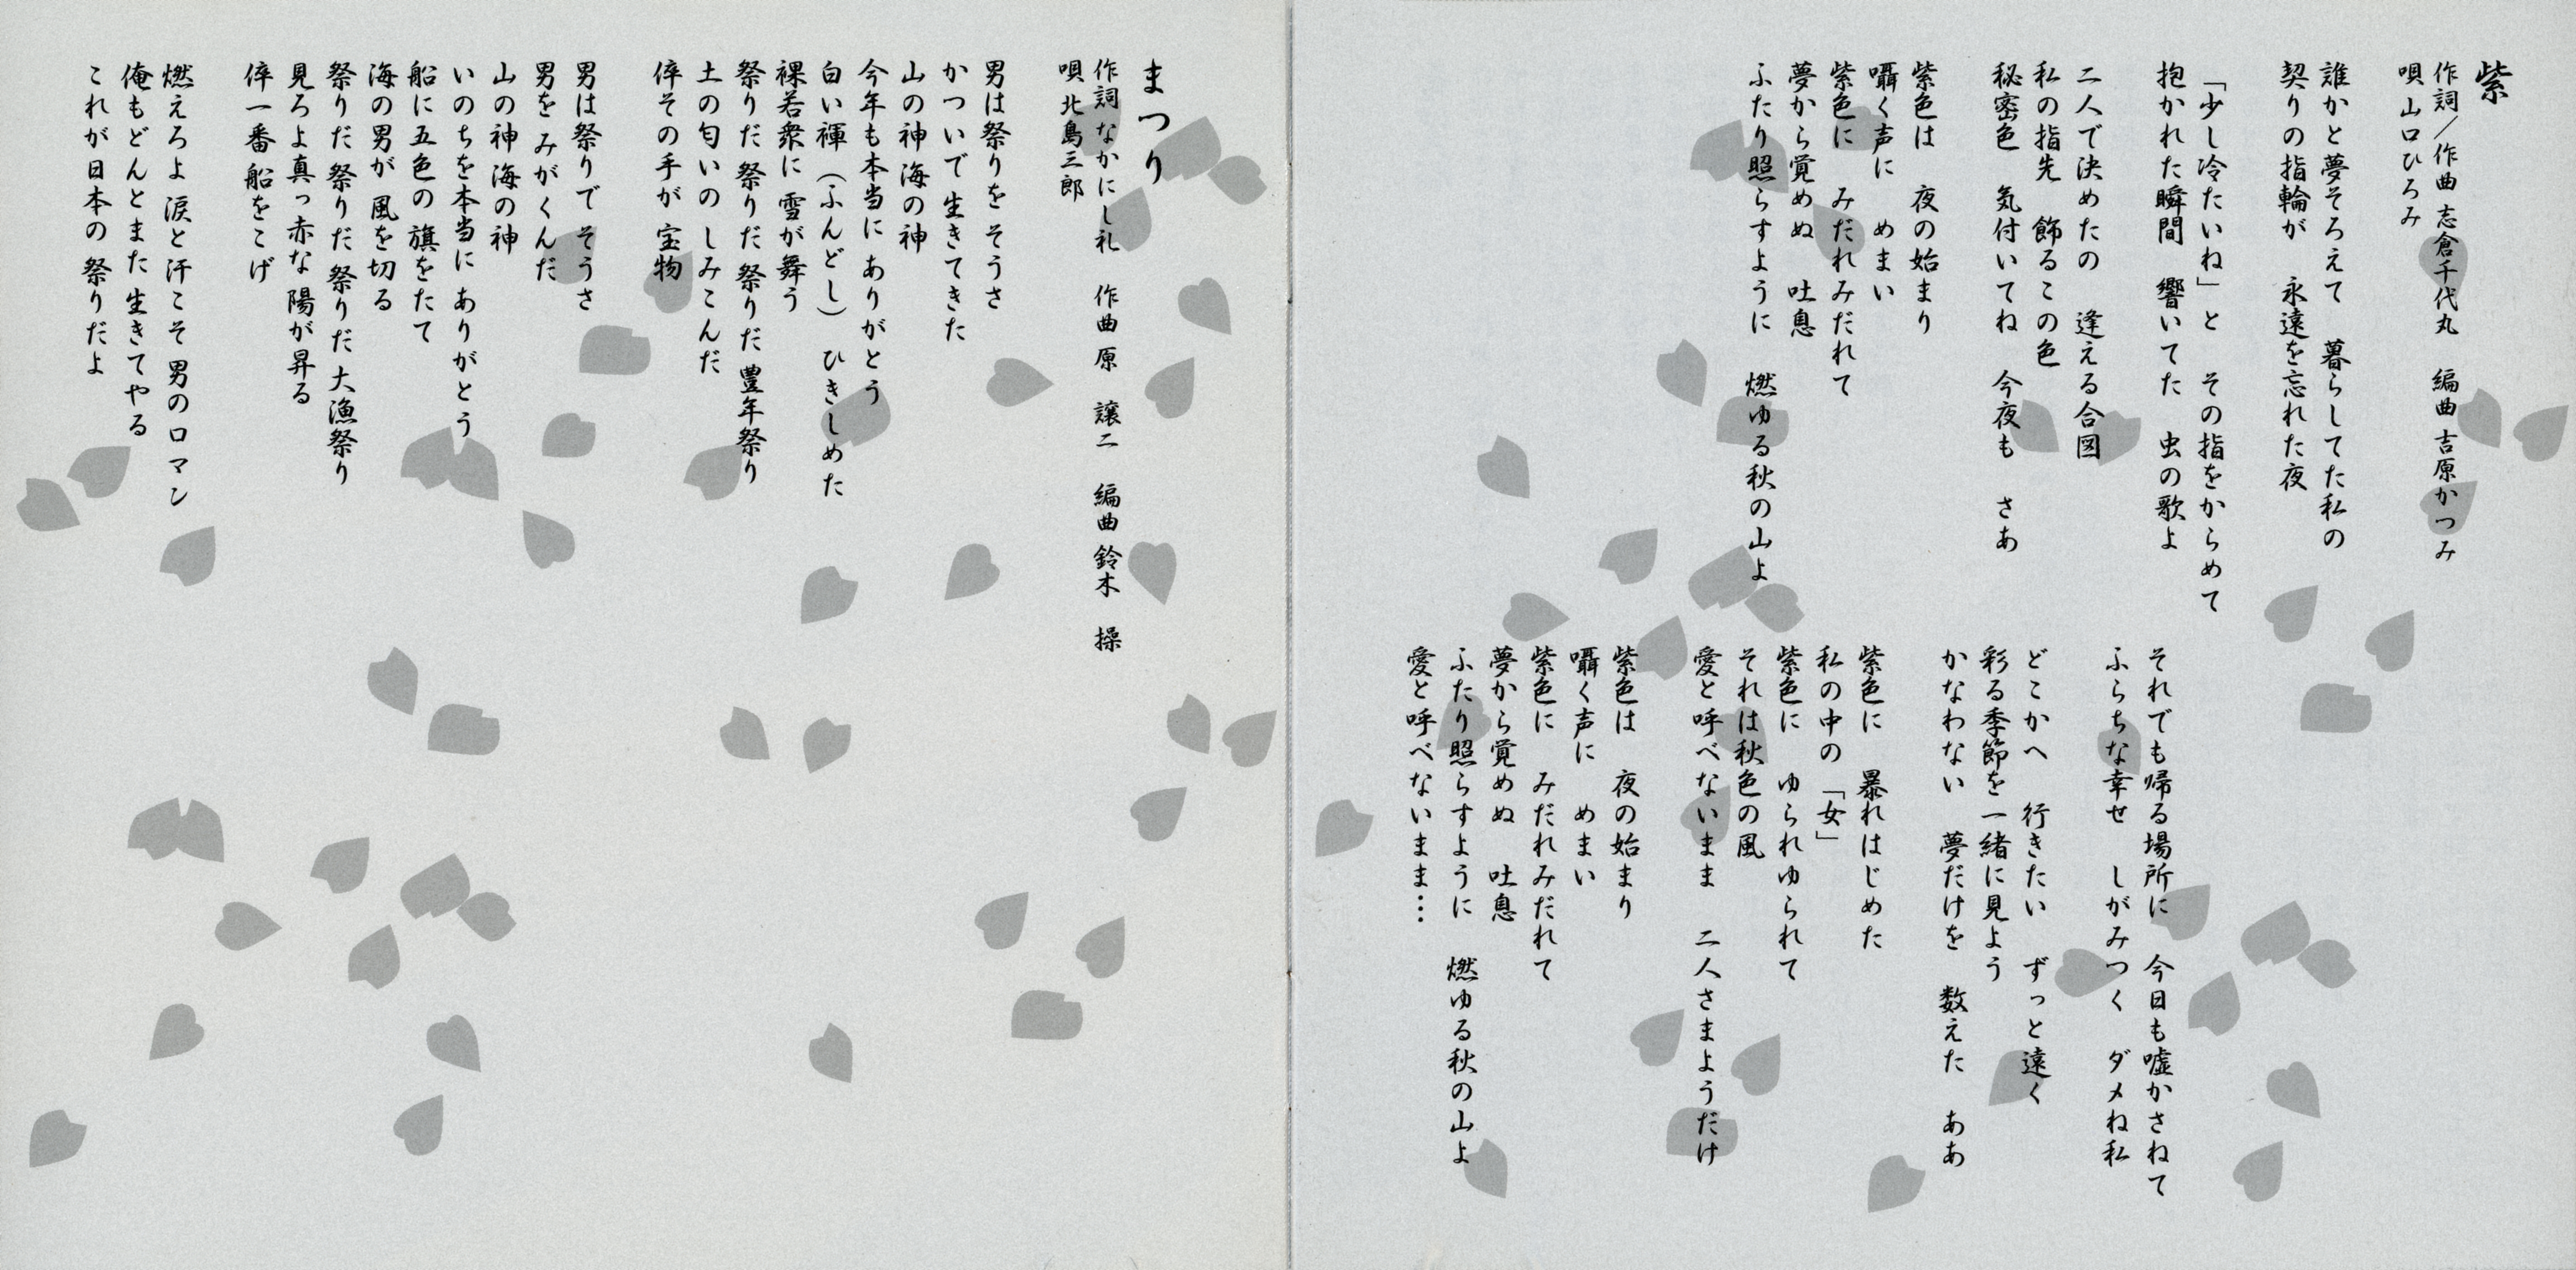 紫
作詞／作曲 志倉千代丸　編曲 吉原かつみ
唄 山口ひろみ
誰かと夢そろえて　暮らしてた私の
契りの指輪が　永遠を忘れた夜
「少し冷たいね」と　その指をからめて
抱かれた瞬間　響いてた　虫の歌よ
二人で決めたの　逢える合図
私の指先　飾るこの色
秘密色　気付いてね　今夜も　さあ
紫色は　夜の始まり
囁く声に　めまい
紫色に　みだれみだれて
夢から覚めぬ　吐息
ふたり照らすように　燃ゆる秋の山よ
それでも帰る場所に　今日も嘘かさねて
ふらちな幸せ　しがみつく　ダメね私
どこかへ　行きたい　ずっと遠く
彩る季節を一緒に見よう
かなわない　夢だけを　数えた　ああ
紫色に　暴れはじめた
私の中の「女」
紫色に　ゆられゆられて
それは秋色の風
愛と呼べないまま　二人さまようだけ
紫色は　夜の始まり
囁く声に　めまい
紫色に　みだれみだれて
夢から覚めぬ　吐息
ふたり照らすように　燃ゆる秋の山よ
愛と呼べないまま…
まつり
作詞 なかにし礼　作曲 原　譲二　編曲 鈴木　操
唄 北島三郎
男は祭りを そうさ
かついで 生きてきた
山の神 海の神
今年も本当に ありがとう
白い褌（ふんどし） ひきしめた
裸若衆に 雪が舞う
祭りだ 祭りだ 祭りだ 豊年祭り
土の匂いの しみこんだ
倅その手が 宝物
男は祭りで そうさ
男を みがくんだ
山の神 海の神
いのちを本当に ありがとう
船に五色の 旗をたて
海の男が 風を切る
祭りだ 祭りだ 祭りだ 大漁祭り
見ろよ真っ赤な 陽が昇る
倅一番 船をこげ
燃えろよ 涙と汗こそ 男のロマン
俺もどんとまた 生きてやる
これが日本の 祭りだよ